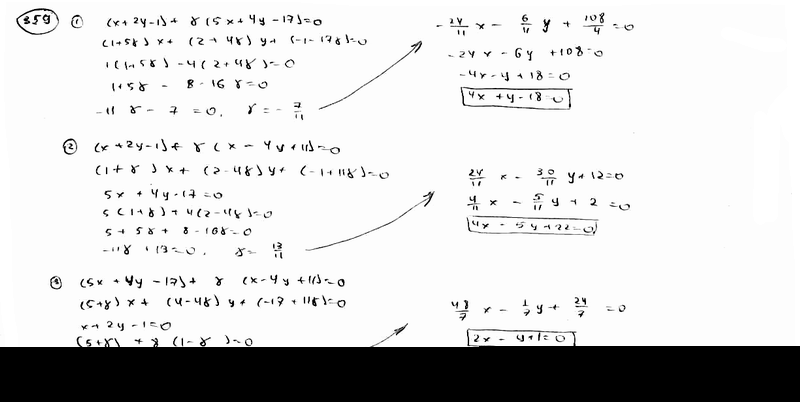 359
① (x+2y-1)+ γ(5x+4y-17)=0
(1+5γ)x+ (2+4γ)y+ (-1-17γ)=0
1(1+5γ)-4(2+4γ)=0
1+5γ - 8-16γ=0
-11γ-7=0, γ=-7/11
-24/11 x - 6/11 y + 108/4 =0
-24x-6y+108=0
-4x-y+18=0
4x+y-18=0
② (x+2y-1)+ γ(x-4y+11)=0
(1+γ)x+ (2-4γ)y+ (-1+11γ)=0
5x+4y-17=0
5(1+γ)+4(2-4γ)=0
5+5γ+8-16γ=0
-11γ+13=0, γ=13/11
24/11 x - 30/11 y+12=0
4/11 x - 5/11 y+2=0
4x-5y+22=0
③ (5x+4y-17)+ γ (x-4y+11)=0
(5+γ)x+ (4-4γ)y+ (-17+11γ)=0
x+2y-1=0
48/7 x - 1/7 y+ 24/7 =0
2x-y+1=0